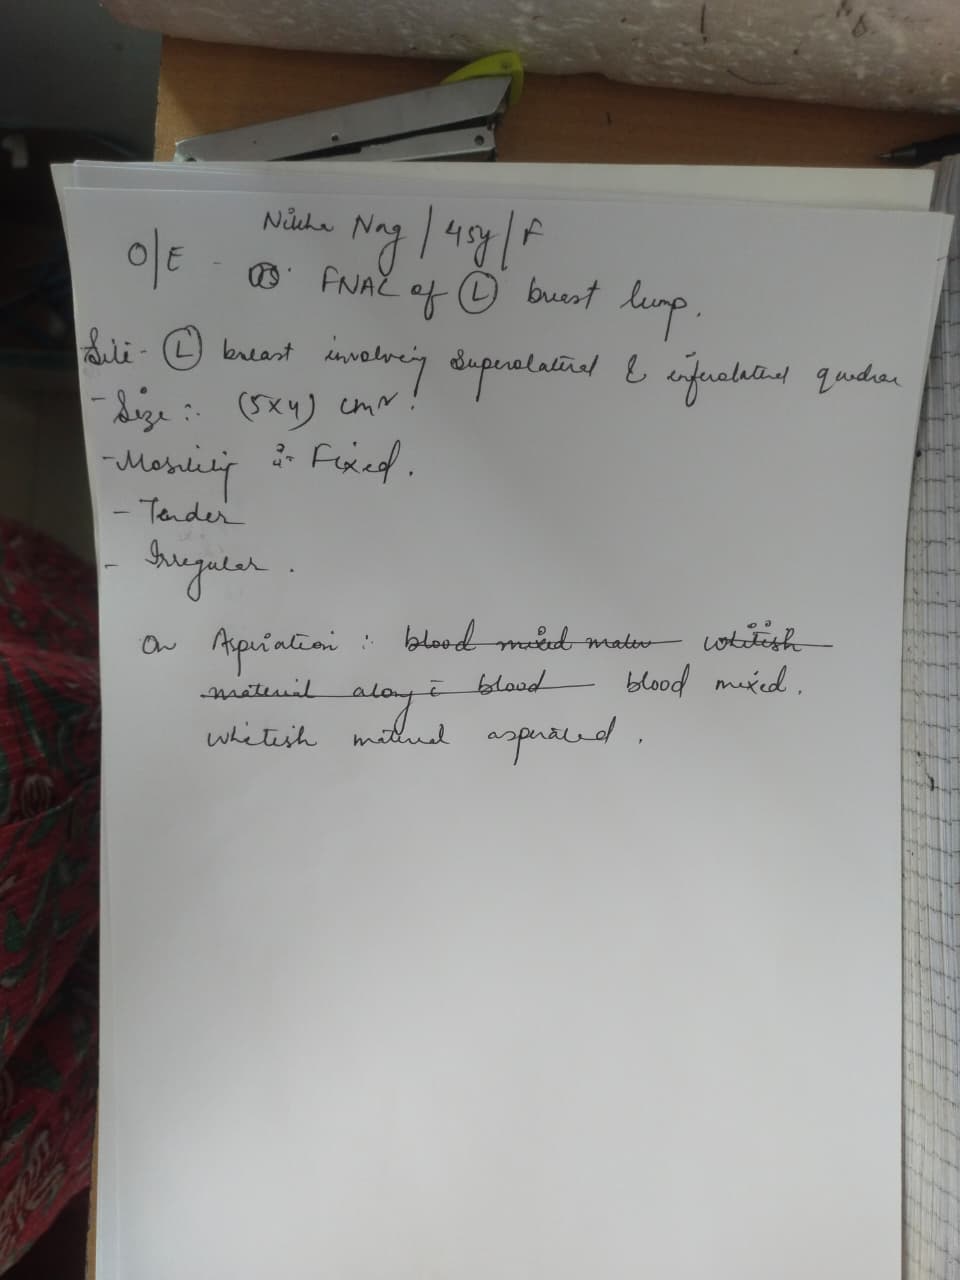 Nikha Nag / 45y / F
O/E - FNAC of Ⓛ breast lump.
Site - Ⓛ breast involving superolateral & inferolateral quadran
- Size :- (5x4) cm².
- Mobility :- Fixed.
- Tender
- Irregular.
On Aspiration :- blood mixed mater whitish
material along c̄ blood blood mixed.
whitish material aspirated.